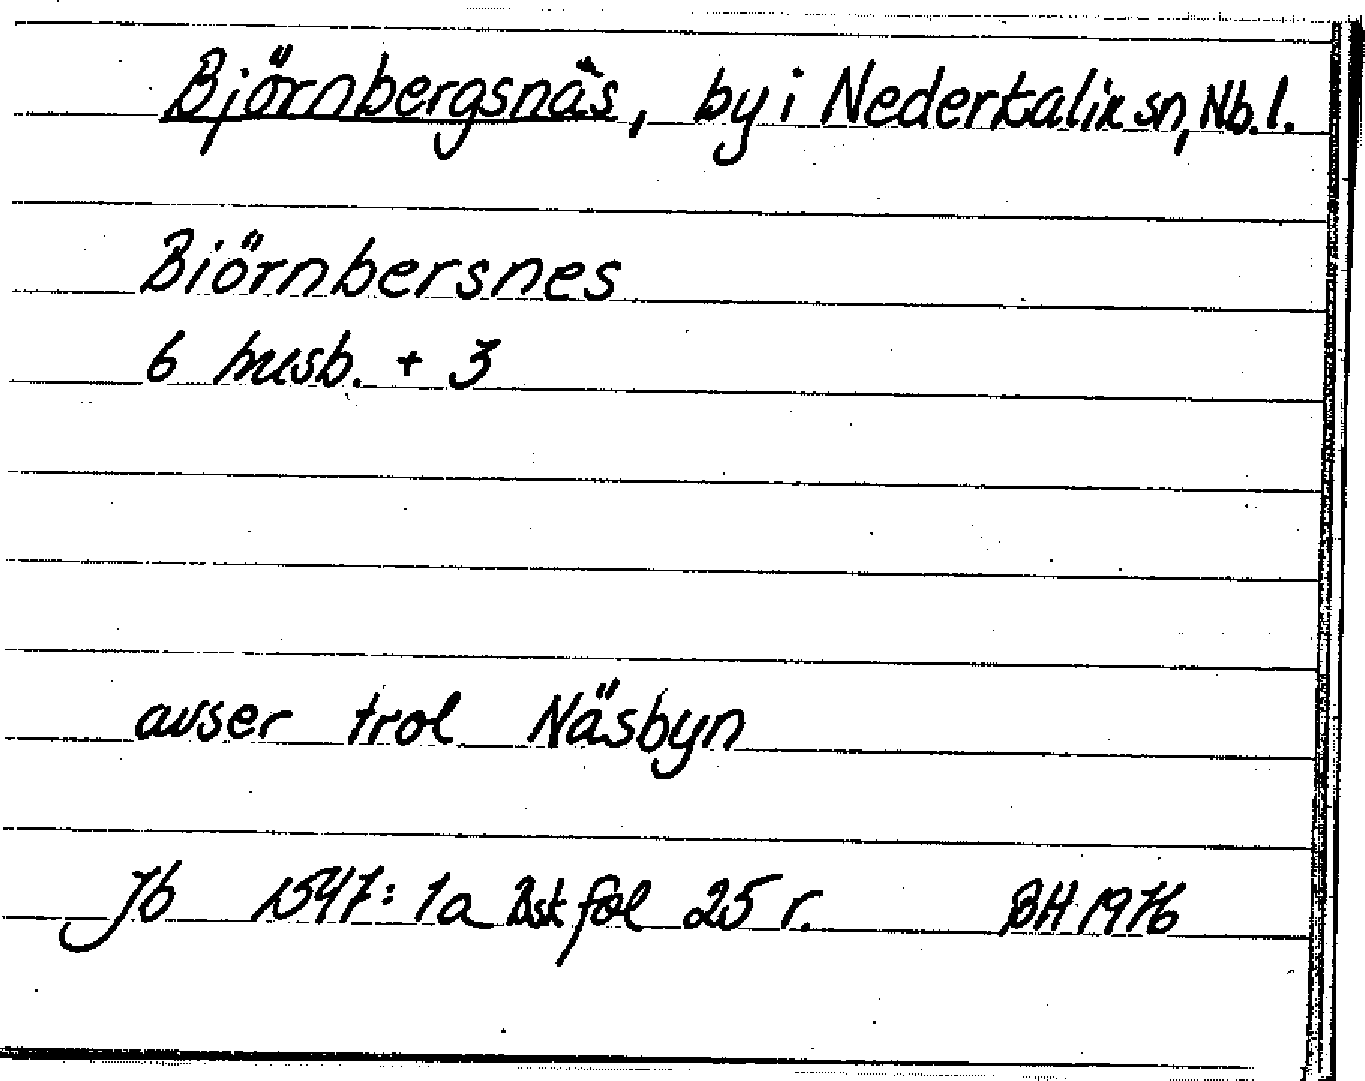 Björnbergsnäs, by i Nederkalix sn, Nb.l.
Biörnbersnes
6 husb. + 3
avser trol Näsbyn
Jb 1547: 1a Bst fol 25 r. BH 1976